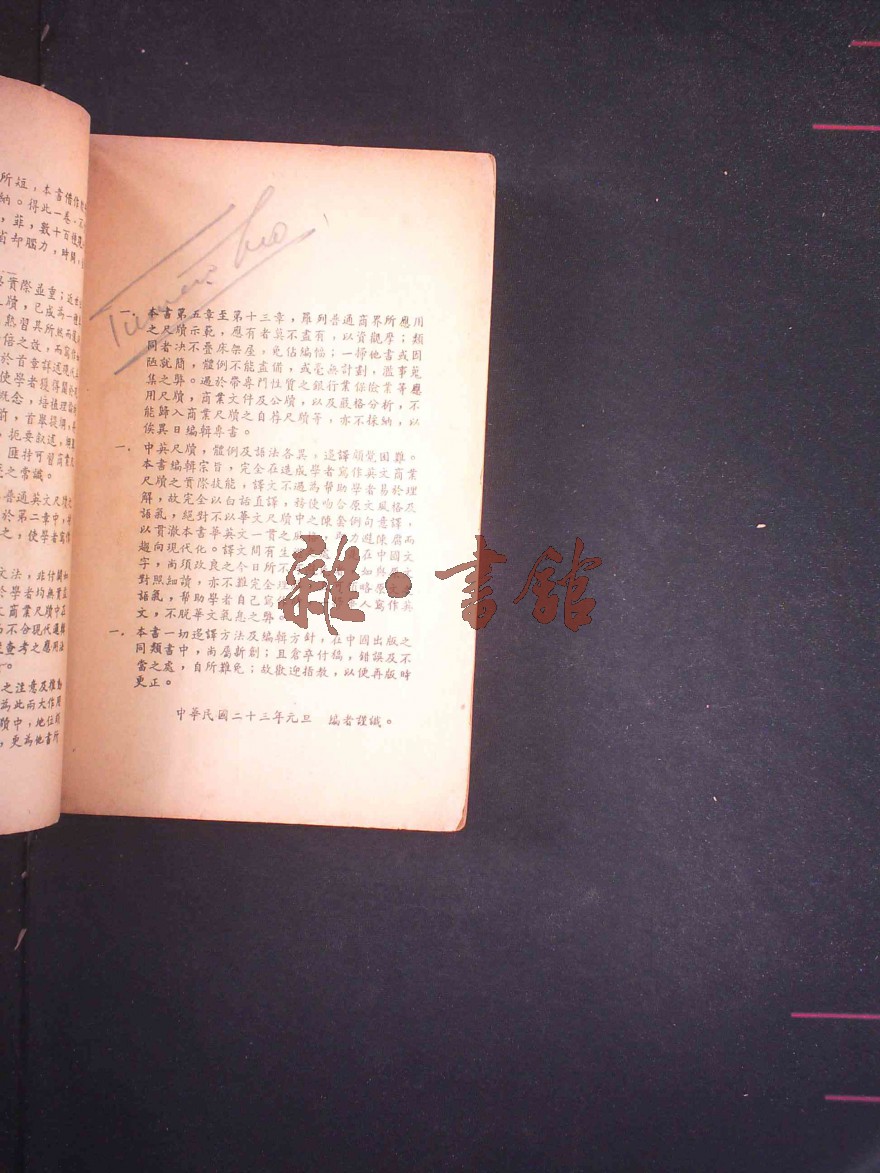 所短，本書備作
納。得此一卷，不
，菲，數十百種
省却腦力，時間，
實際並重；近世
牘，已成為一種
熟習其所然而
倍之效，而寫作
於首章詳述現
使學者獲得關於
概念，培植理論
前，首舉提綱，
，扼要叙述，
匪特可習商業
之常識。
普通英文尺牘之
於第二章中，
之，使學者寫作
文法，非付闕如
於學者均無實益
文商業尺牘中在
而不分現代邏輯
查考之應用法
之注意及推動
為此兩大作用
牘中，地位頗
，更為他書所
一．本書第五章至第十三章，羅列普通商界所應用
之尺牘示範，應有者莫不盡有，以資觀摩；類
同者决不叠床架屋，免佔編幅；一掃他書或因
陋就簡，體例不能盡備，或毫無計劃，濫事蒐
集之弊。過於帶專門性質之銀行業保險業等應
用尺牘，商業文件及公牘，以及嚴格分析，不
能歸入商業尺牘之自荐尺牘等，亦不採納，以
俟異日編輯專書。
一．中英尺牘，體例及語法各異，迻譯頗覺困難。
本書編輯宗旨，完全在造成學者寫作英文商業
尺牘之實際技能，譯文不過為帮助學者易於理
解，故完全以白話直譯，務使吻合原文風格及
語氣，絕對不以華文尺牘中之陳套例句意譯，
以貫澈本書華英文一貫之 力避陳腐而
趨向現代化。譯文間有生 在中國文
字，尚須改良之今日所不 如與原文
對照細讀，亦不難完全 領略原文
語氣，帮助學者自己寫 人寫作英
文，不脫華文氣息之弊。
一．本書一切迻譯方法及編輯方針，在中國出版之
同類書中，尚屬新創；且倉卒付稿，錯誤及不
當之處，自所難免；故歡迎指教，以便再版時
更正。
中華民國二十三年元旦　編者謹識。
雜·書館